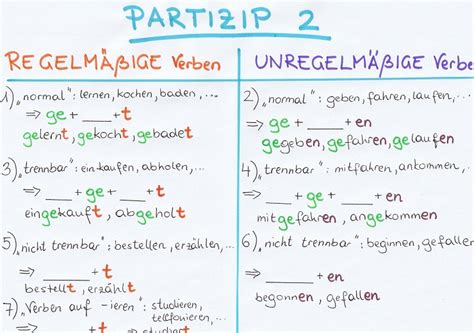 PARTIZIP 2
REGELMÄßIGE Verben
1) „normal“: lernen, kochen, baden, ...
⇒ ge + ___ + t
gelernt, gekocht, gebadet
3) „trennbar“: einkaufen, abholen, ...
⇒ __ + ge + __ + t
eingekauft, abgeholt
5) „nicht trennbar“: bestellen, erzählen, ...
⇒ ___ + t
bestellt, erzählt
7) „Verben auf -ieren“: studieren,
telefonieren
⇒ ___ + t studiert
UNREGELMÄßIGE Verbe
2) „normal“: geben, fahren, laufen, ...
⇒ ge + ___ + en
gegeben, gefahren, gelaufen
4) „trennbar“: mitfahren, ankommen, ...
⇒ __ + ge + __ + en
mitgefahren, angekommen
6) „nicht trennbar“: beginnen, gefallen
⇒ ___ + en
begonnen, gefallen